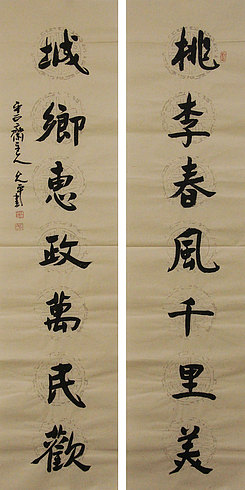 桃李春風千里美
城鄉惠政萬民歡